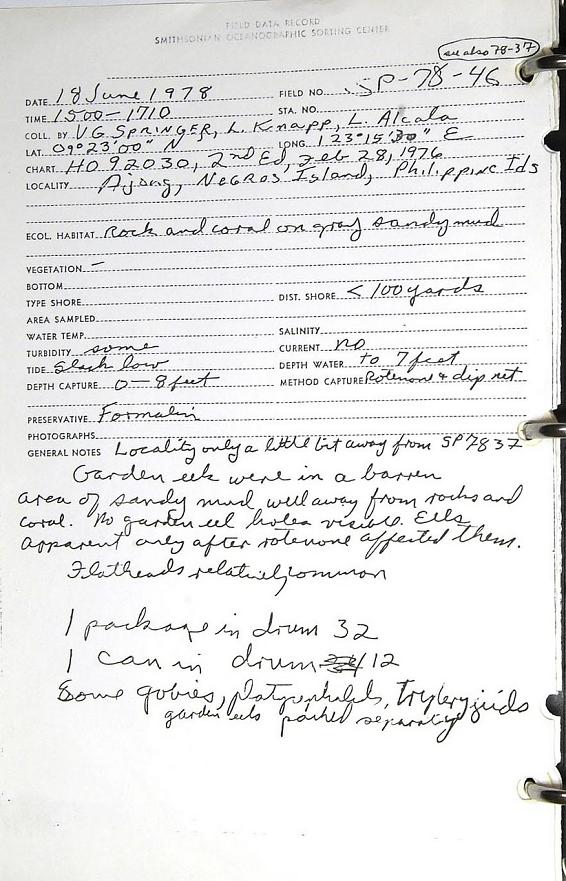 FIELD DATA RECORD
SMITHSONIAN OCEANOGRAPHIC SORTING CENTER
see also 78-37
DATE 18 June 1978 FIELD NO. SP-78-46
TIME 1500-1710 STA. NO.
COLL. BY VG SPRINGER, L. Knapp, L. Alcala
LAT. 09°23'00" N LONG. 123°15'30" E
CHART HO 92030, 2nd Ed, Feb 28, 1976
LOCALITY Ajong, Negros Island, Philippine Ids
ECOL. HABITAT Rock and coral on gray sandy mud
VEGETATION —
BOTTOM
TYPE SHORE DIST. SHORE < 100 yards
AREA SAMPLED
WATER TEMP. SALINITY
TURBIDITY some CURRENT no
TIDE Slack low DEPTH WATER to 7 feet
DEPTH CAPTURE 0-8 feet METHOD CAPTURE Rotenone & dip net
PRESERVATIVE Formalin
PHOTOGRAPHS
GENERAL NOTES Locality only a little bit away from SP 78 37
Garden eels were in a barren
area of sandy mud well away from rocks and
coral. No garden eel holes visible. Eels
apparent only after rotenone affected them.
Flatheads relatively common
1 package in drum 32
1 can in drum 12
Some gobies, platycephalids, tripterygiids
garden eels packed separately